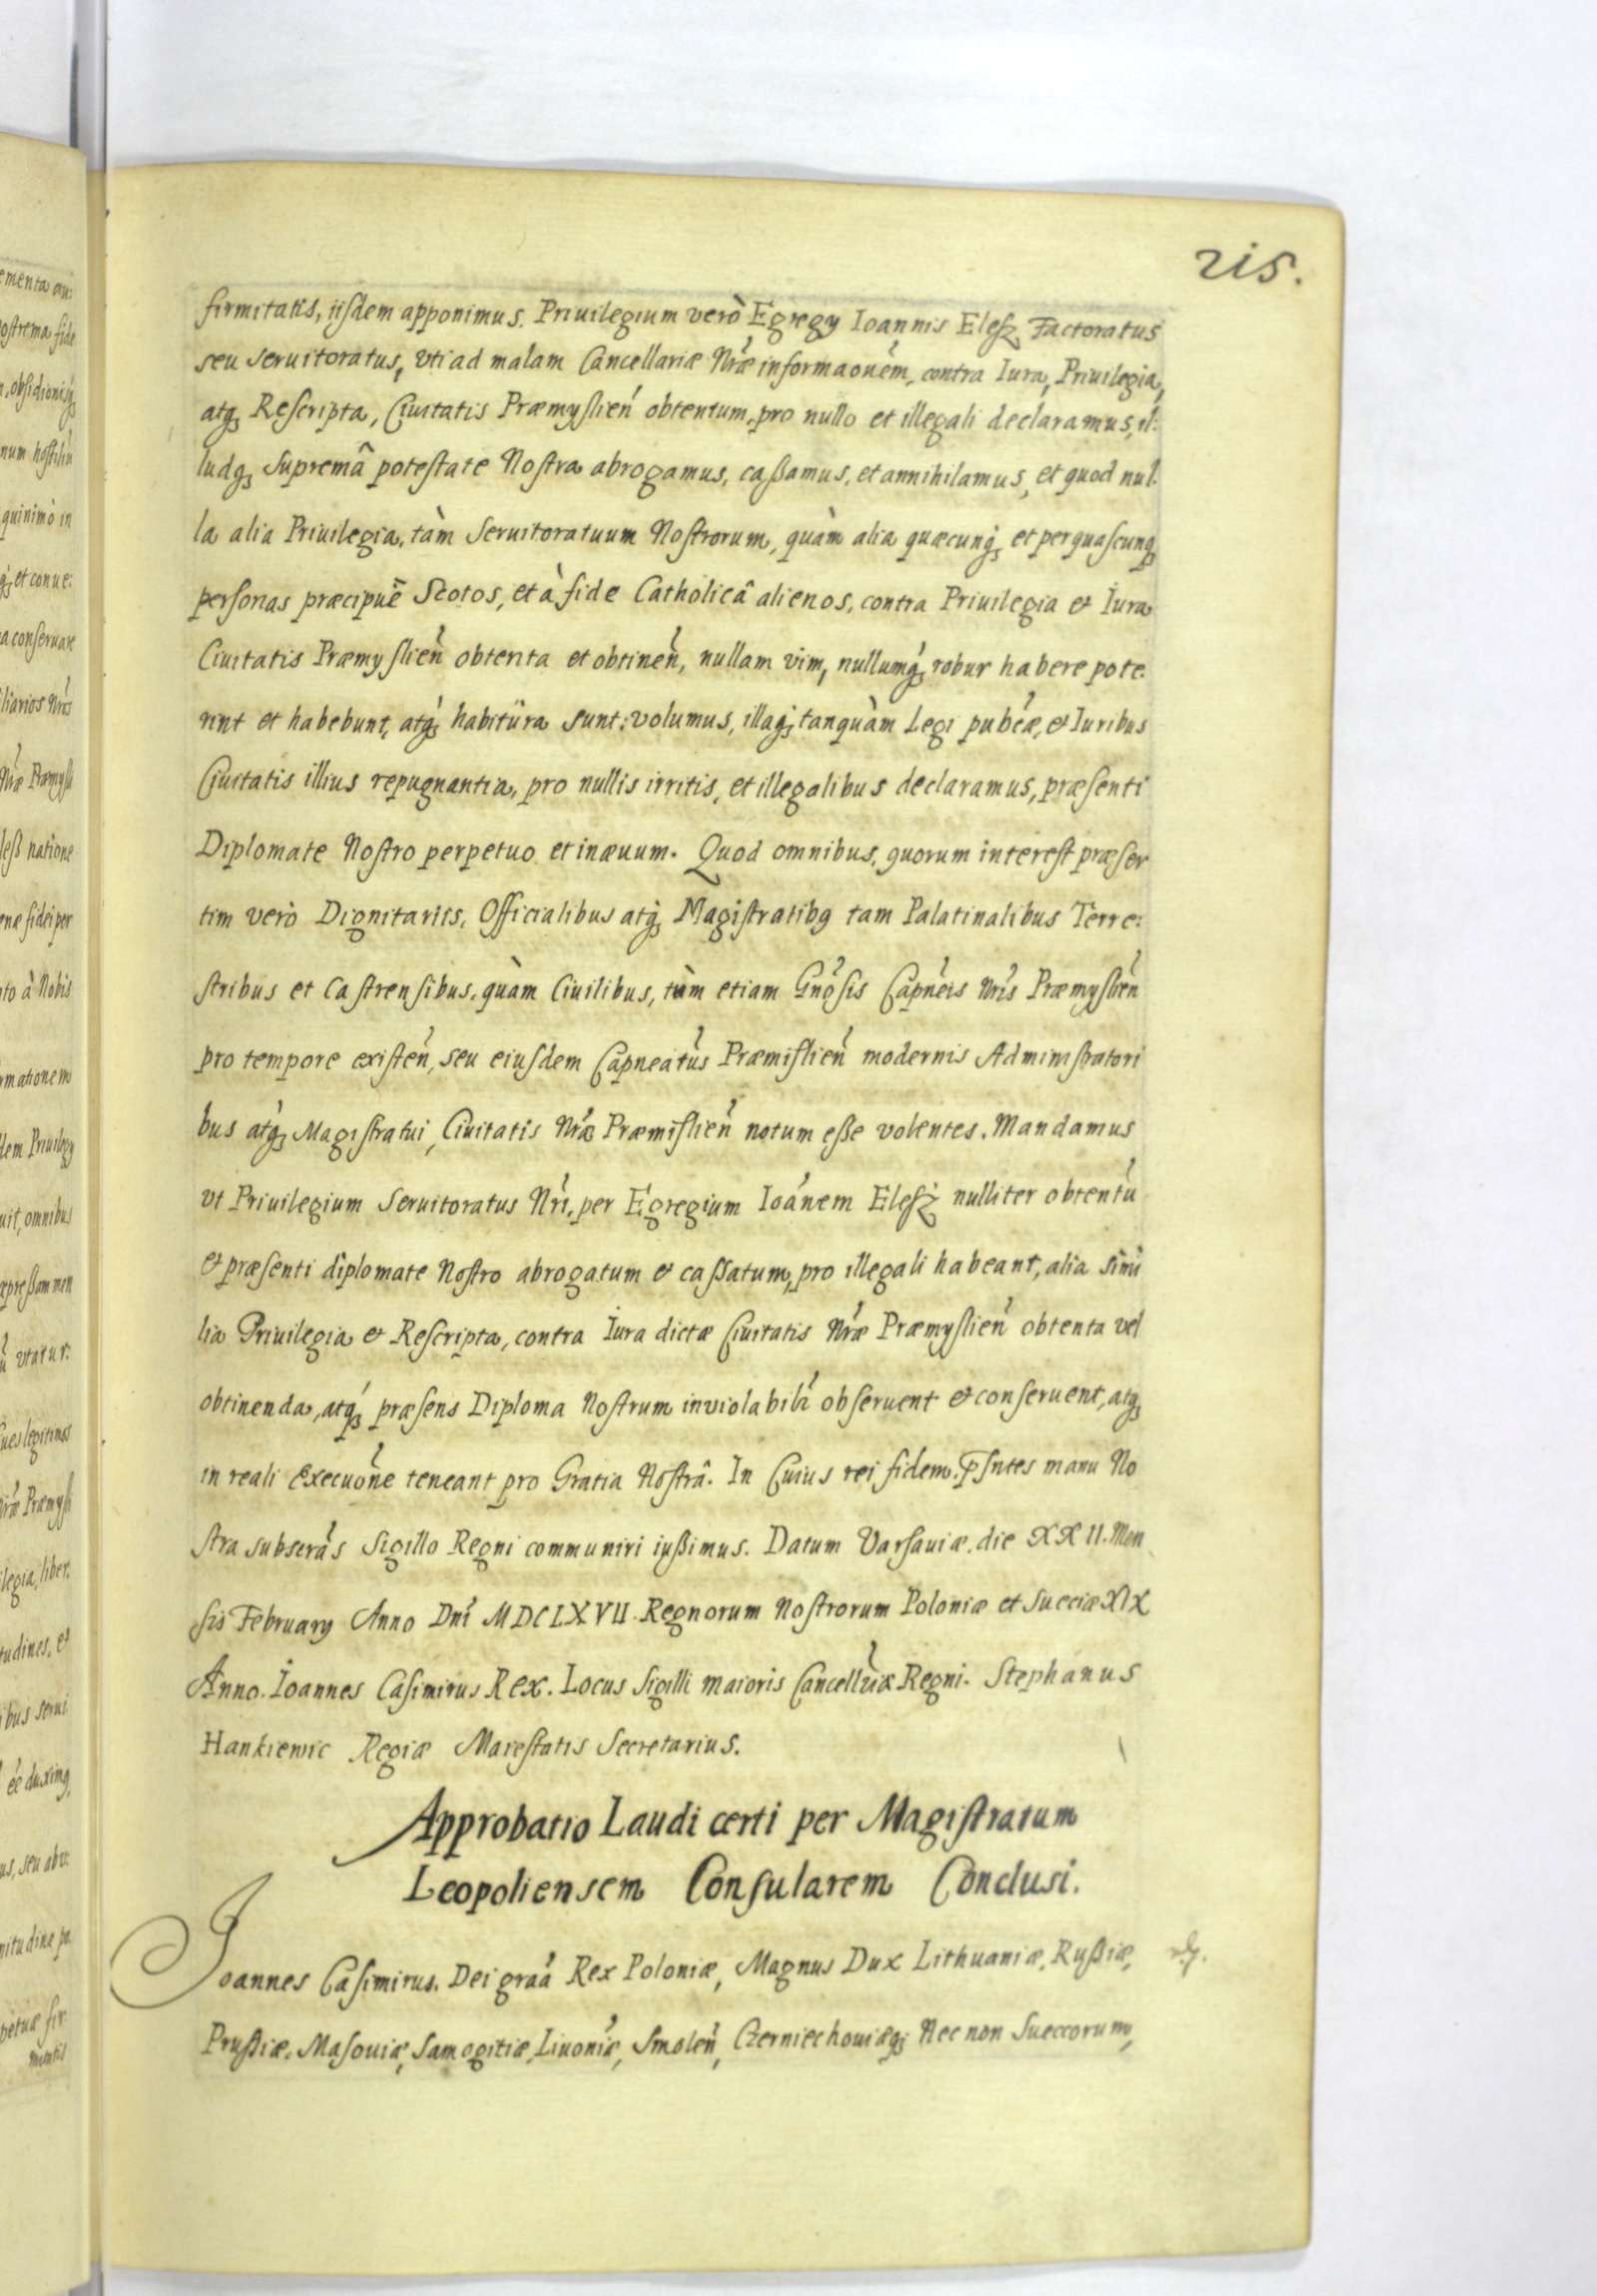 215.
firmitatis, ijsdem apponimus. Priuilegium verò Egregy Ioannis Elesz Factoratus
seu seruitoratus, vti ad malam Cancellariæ Nræ informaonem, contra Iura, Priuilegia,
atq3 Rescripta, Ciuitatis Præmyslień obtentum, pro nullo et illegali declaramus, il:
ludq3 supremâ potestate Nostra abrogamus, caßamus, et annihilamus, et quod nul.
la alia Priuilegia, tàm seruitoratuum Nostrorum, quàm alia quæcunq3 et per quascunq3
personas præcipuè Scotos, et à fide Catholicâ alienos, contra Priuilegia et Iura
Ciuitatis Præmyslień obtenta et obtineń, nullam vim, nullumq3 robur habere pote.
rint et habebunt, atq3 habitura sunt: volumus, illaq3 tanquàm Legi pubcæ, et Iuribus
Ciuitatis illius repugnantia, pro nullis irritis, et illegalibus declaramus, præsenti
Diplomate Nostro perpetuo et in æuum. Quod omnibus, quorum interest præser
tim verò Dignitariis, Officialibus atq3 Magistratibg tam Palatinalibus Terre:
stribus et Castrensibus, quàm Ciuilibus, tùm etiam Gnosis Capneis Nris Præmyslień
pro tempore existeń, seu eiusdem Capneatus Præmislień modernis Administratori
bus atq3 Magistratui, Ciuitatis Nræ Præmislień notum eße volentes. Mandamus
vt Priuilegium seruitoratus Nri, per Egregium Ioánem Elesz nulliter obtentu
et præsenti diplomate Nostro abrogatum et cassatum, pro illegali habeant, alia simi
lia Priuilegia et Rescripta, contra Iura dictæ Ciuitatis Nræ Præmyslień obtenta vel
obtinenda, atq3 præsens Diploma Nostrum inviolabilr obseruent et conseruent, atq3
in reali Execuone teneant pro Gratia Nostrâ. In Cuius rei fidem, psntes manu No
stra subscras Sigillo Regni communiri iußimus. Datum Varsauiæ. die XXII. Men
sis February Anno Dni MDCLXVII. Regnorum Nostrorum Poloniæ et Sueciæ XIX
Anno. Ioannes Casimirus Rex. Locus Sigilli maioris Cancellriæ Regni. Stephanus
Hankiewic Regiæ Maiestatis Secretarius.
Approbatio Laudi certi per Magistratum
Leopoliensem Consularem Conclusi.
Ioannes Casimirus. Dei graa Rex Poloniæ, Magnus Dux Lithuaniæ, Rußiæ,
Prußiæ. Masouiæ, Samogitiæ, Liuoniæ, Smoleń, Czerniechouiæq3 Nec non Sueccorum,